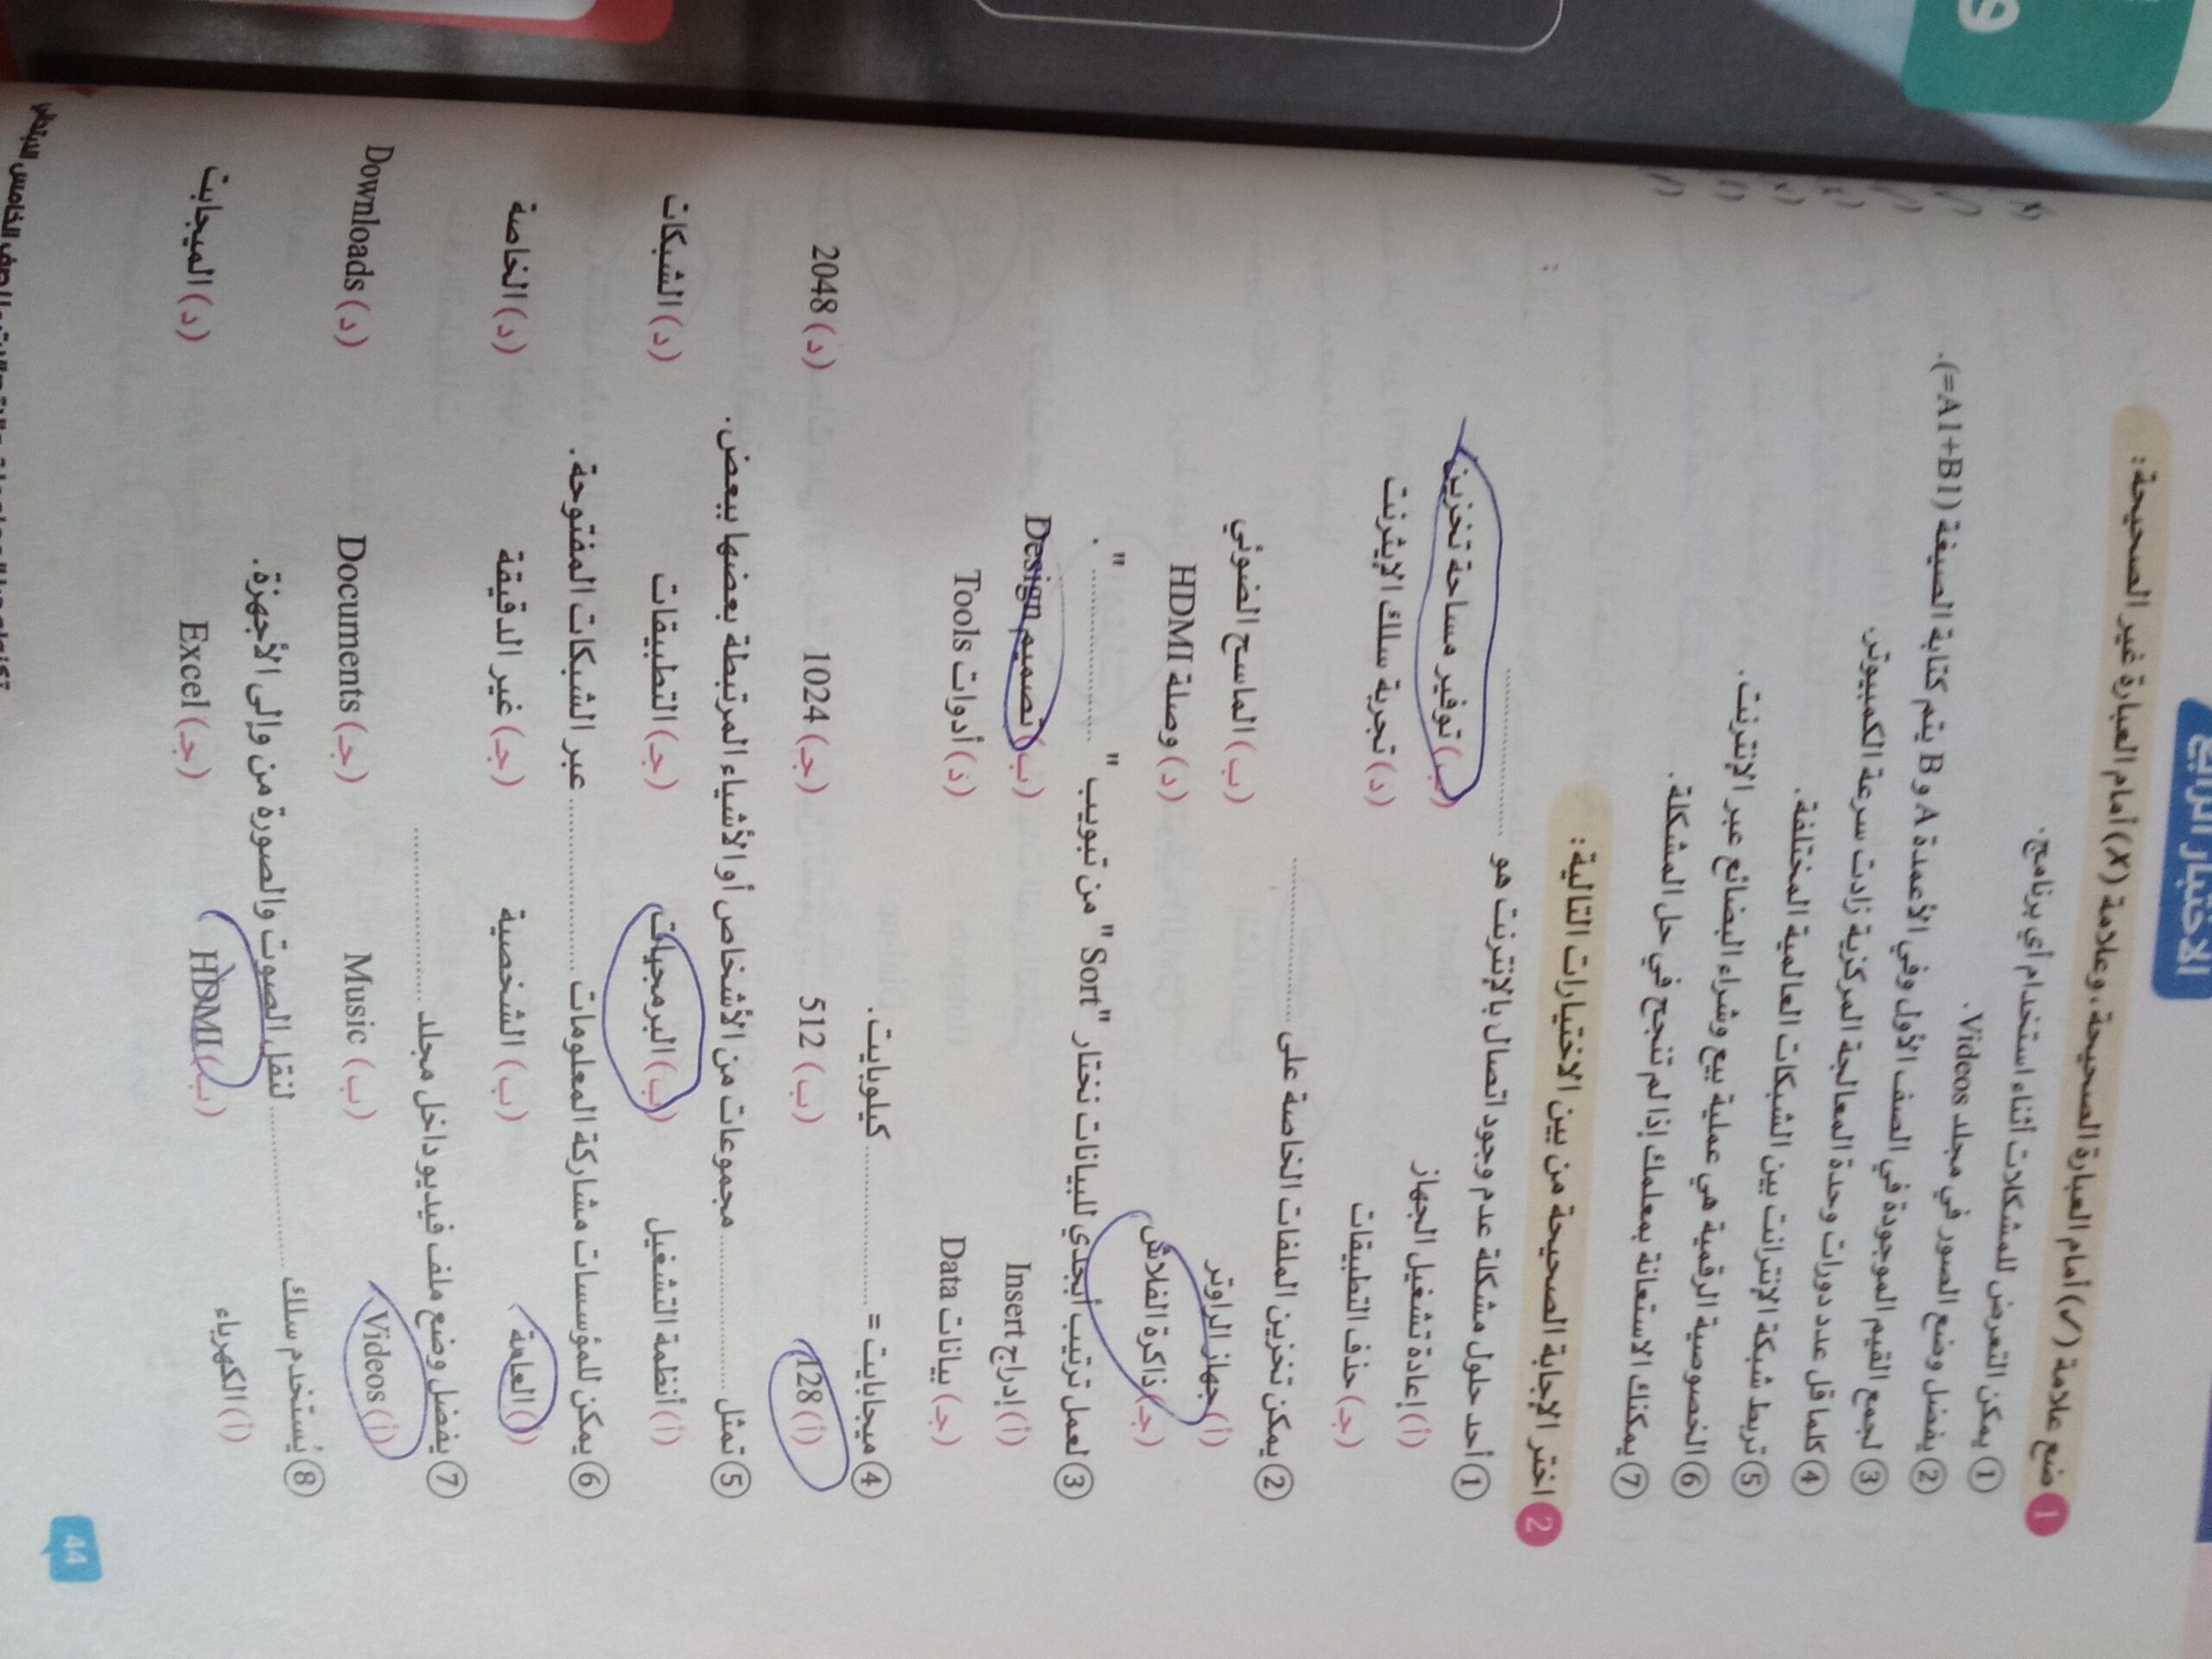 الاختبار الرابع
1 ضع علامة (✓) أمام العبارة الصحيحة، وعلامة (X) أمام العبارة غير الصحيحة:
① يمكن التعرض للمشكلات أثناء استخدام أي برنامج.
② يفضل وضع الصور في مجلد Videos.
③ لجمع القيم الموجودة في الصف الأول وفي الأعمدة A و B يتم كتابة الصيغة (=A1+B1).
④ كلما قل عدد دورات وحدة المعالجة المركزية زادت سرعة الكمبيوتر.
⑤ تربط شبكة الإنترانت بين الشبكات العالمية المختلفة.
⑥ الخصوصية الرقمية هي عملية بيع وشراء البضائع عبر الإنترنت.
⑦ يمكنك الاستعانة بمعلمك إذا لم تنجح في حل المشكلة.
2 اختر الإجابة الصحيحة من بين الاختيارات التالية:
① أحد حلول مشكلة عدم وجود اتصال بالإنترنت هو ....................
(أ) إعادة تشغيل الجهاز (ب) توفير مساحة تخزين
(جـ) حذف التطبيقات (د) تجربة سلك الإيثرنت
② يمكن تخزين الملفات الخاصة على ....................
(أ) جهاز الراوتر (ب) الماسح الضوئي
(جـ) ذاكرة الفلاش (د) وصلة HDMI
③ لعمل ترتيب أبجدي للبيانات نختار "Sort" من تبويب "....................".
(أ) إدراج Insert (ب) تصميم Design
(جـ) بيانات Data (د) أدوات Tools
④ ميجابايت = .................... كيلوبايت.
(أ) 128 (ب) 512 (جـ) 1024 (د) 2048
⑤ تمثل .................... مجموعات من الأشخاص أو الأشياء المرتبطة بعضها ببعض.
(أ) أنظمة التشغيل (ب) البرمجيات (جـ) التطبيقات (د) الشبكات
⑥ يمكن للمؤسسات مشاركة المعلومات .................... عبر الشبكات المفتوحة.
(أ) العامة (ب) الشخصية (جـ) غير الدقيقة (د) الخاصة
⑦ يفضل وضع ملف فيديو داخل مجلد ....................
(أ) Videos (ب) Music (جـ) Documents (د) Downloads
⑧ يُستخدم سلك .................... لنقل الصوت والصورة من وإلى الأجهزة.
(أ) الكهرباء (ب) HDMI (جـ) Excel (د) الميجابت
44